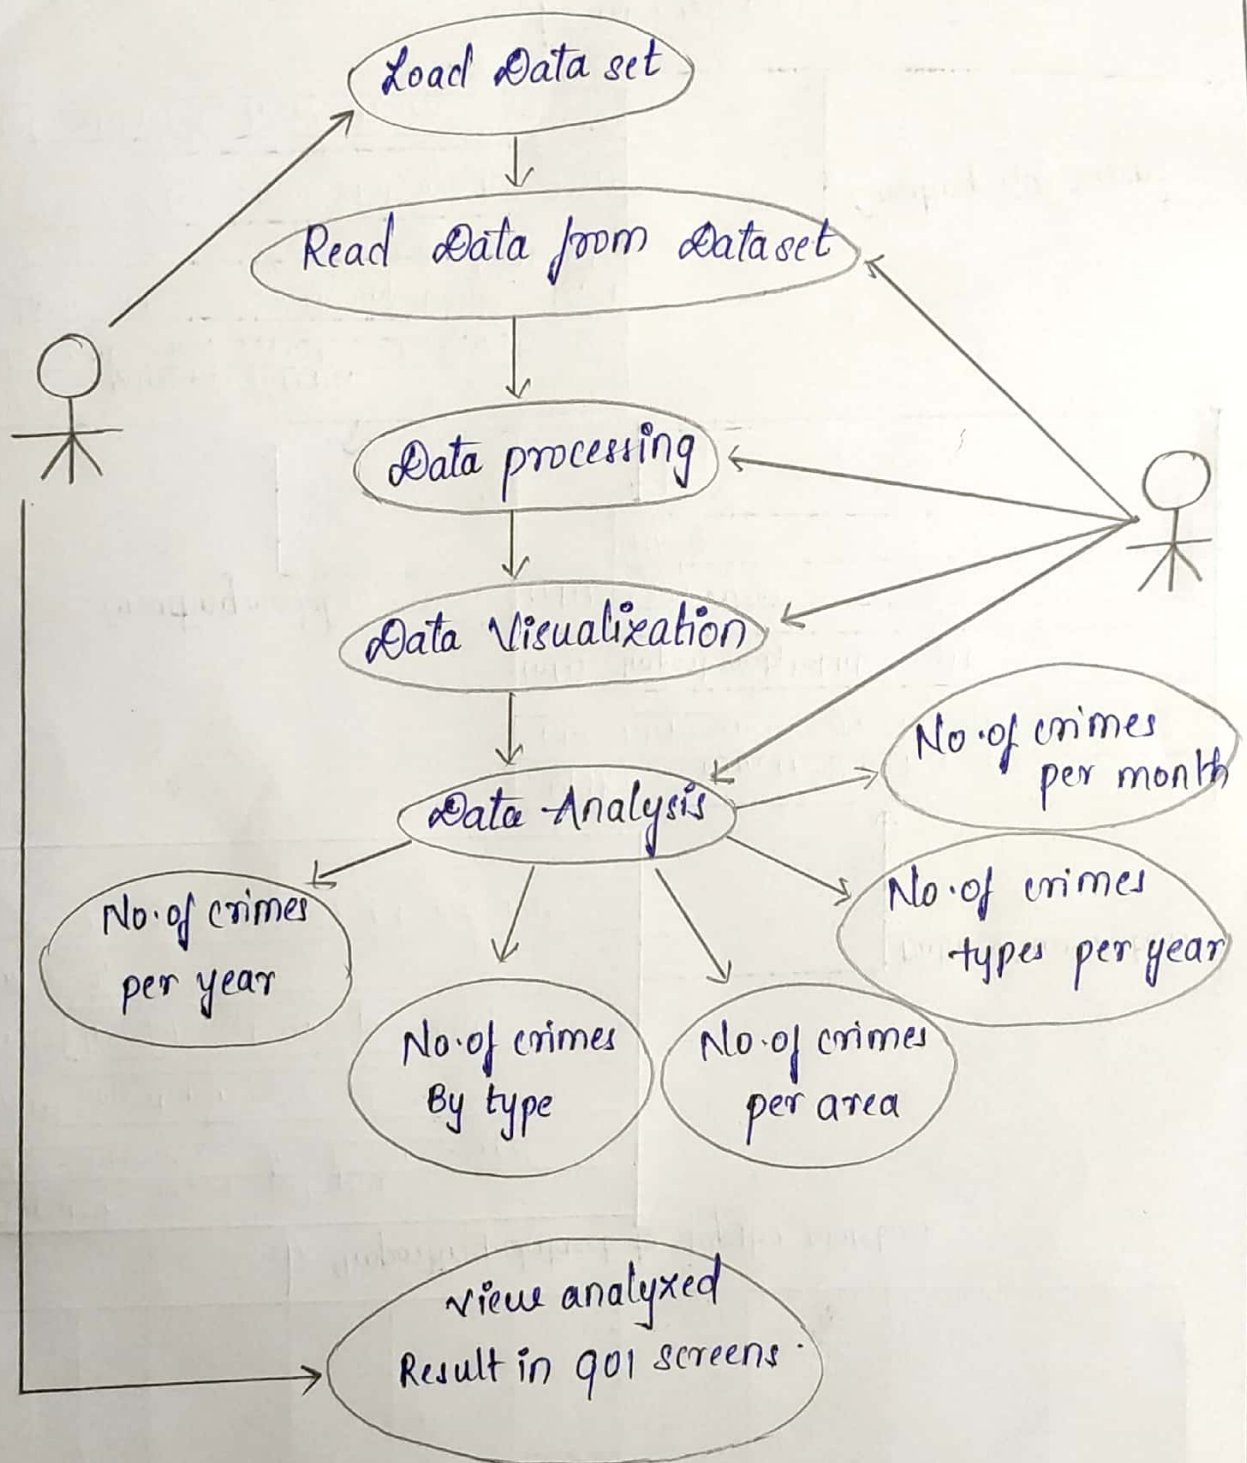 Load Data set
Read Data from Dataset
Data processing
Data Visualization
Data Analysis
No.of crimes
per month
No.of crimes
types per year
No.of crimes
per year
No.of crimes
By type
No.of crimes
per area
view analyzed
Result in goi screens.